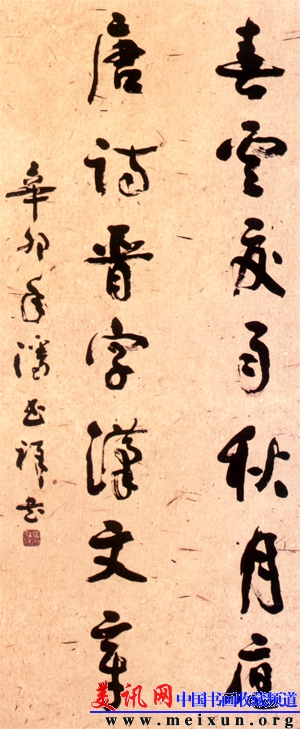 春雲夏雨秋月夜
唐詩晉字漢文章
辛卯年潘祥書
美讯网 中国书画收藏频道
www.meixun.org